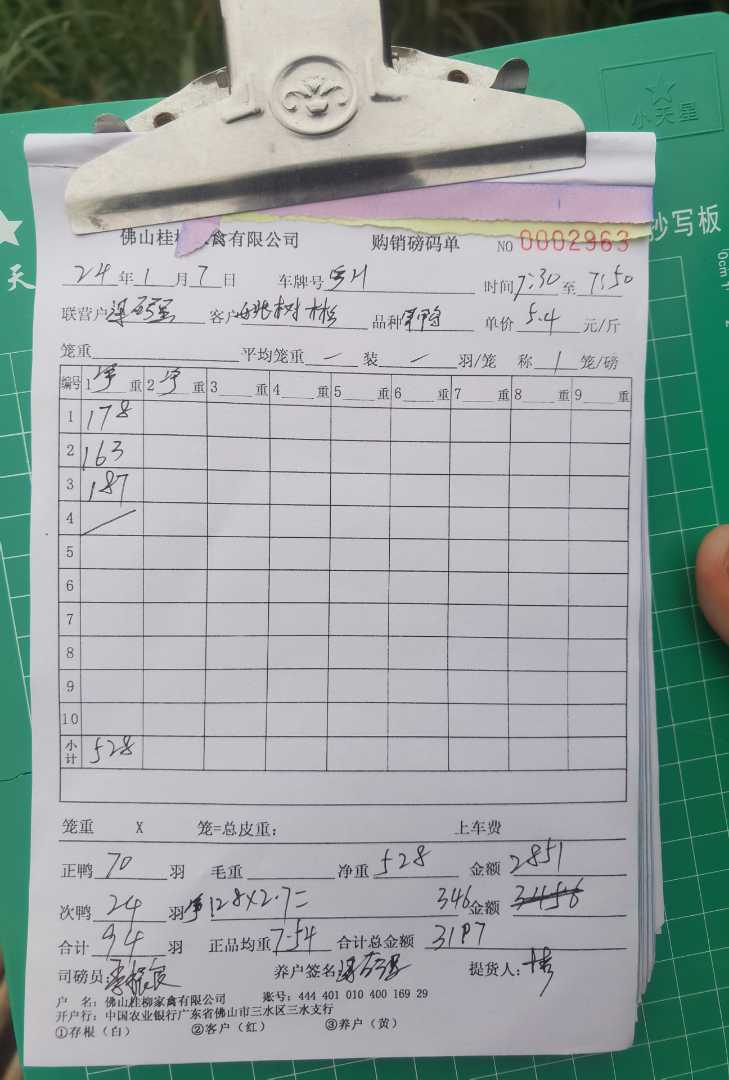 小天星
抄写板
天
佛山桂柳家禽有限公司 购销磅码单 NO 0002963
24年1月7日 车牌号 时间7:30至7:50
联营户 客户 树 品种 鸭 单价5.4元/斤
笼重 平均笼重 — 装 — 羽/笼 称 1 笼/磅
编号 1净重 2净重 3 重 4 重 5 重 6 重 7 重 8 重 9 重
1 178
2 163
3 187
4
5
6
7
8
9
10
小计 528
笼重 X 笼=总皮重: 上车费
正鸭 70 羽 毛重 净重 528 金额 2851
次鸭 24 羽 净128×2.7= 346 金额 3456
合计 94 羽 正品均重 7.54 合计总金额 3197
司磅员: 养户签名: 提货人:
户 名: 佛山桂柳家禽有限公司 账号: 444 401 010 400 169 29
开户行: 中国农业银行广东省佛山市三水区三水支行
①存根(白) ②客户(红) ③养户(黄)